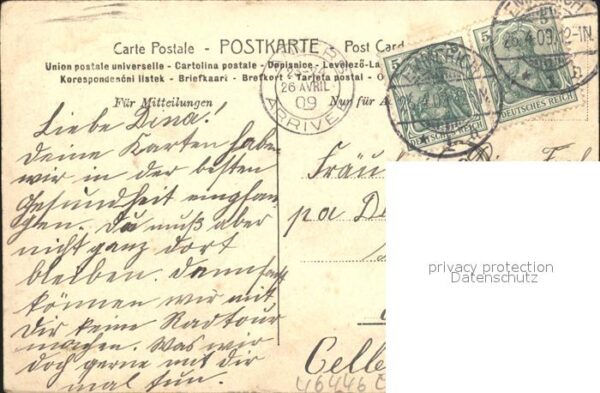 Carte Postale - POSTKARTE - Post Card
Union postale universelle - Cartolina postale - Dopisnice - Levelező-La
Korespondenčni listek - Briefkaart - Brefkort - Tarjeta postal - O
Für Mitteilungen
Nur für A
26 AVRIL
09
ARRIVÉE
5
5
EMMERICH
26.4.09.12-1N.
DEUTSCHES REICH
DEUTSCHES REICH
Liebe Dina!
Deine Karten haben
wir in der besten
Gesundheit empfan-
gen. Du muß aber
nicht ganz dort
bleiben. Dann
können wir mit
Dir keine Radtour
machen. Was wir
doch gerne mit dir
mal tun.
Fräu
pa De
Celle
46446
privacy protection
Datenschutz